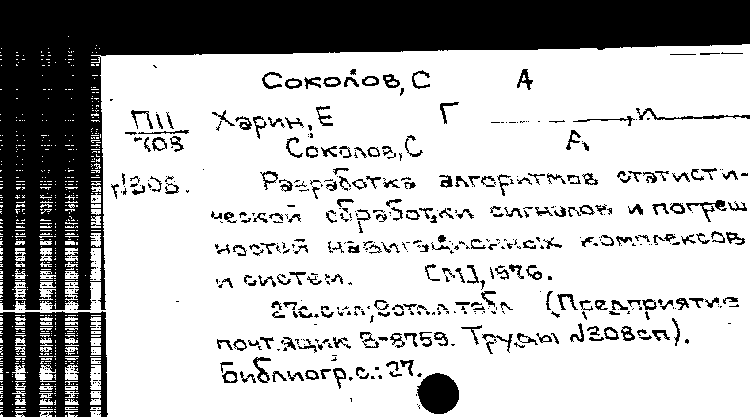 Соколов, С А
П11 Харин, Е Г , и
708 Соколов, С А,
№308. Разработка алгоритмов статисти-
ческой обработки сигналов и погреш
ностей навигационных комплексов
и систем. [М], 1976.
27с. с ил; 8 отл.л. табл (Предприятие
почт. ящик В-8759. Труды №308сп).
Библиогр. с.: 27.